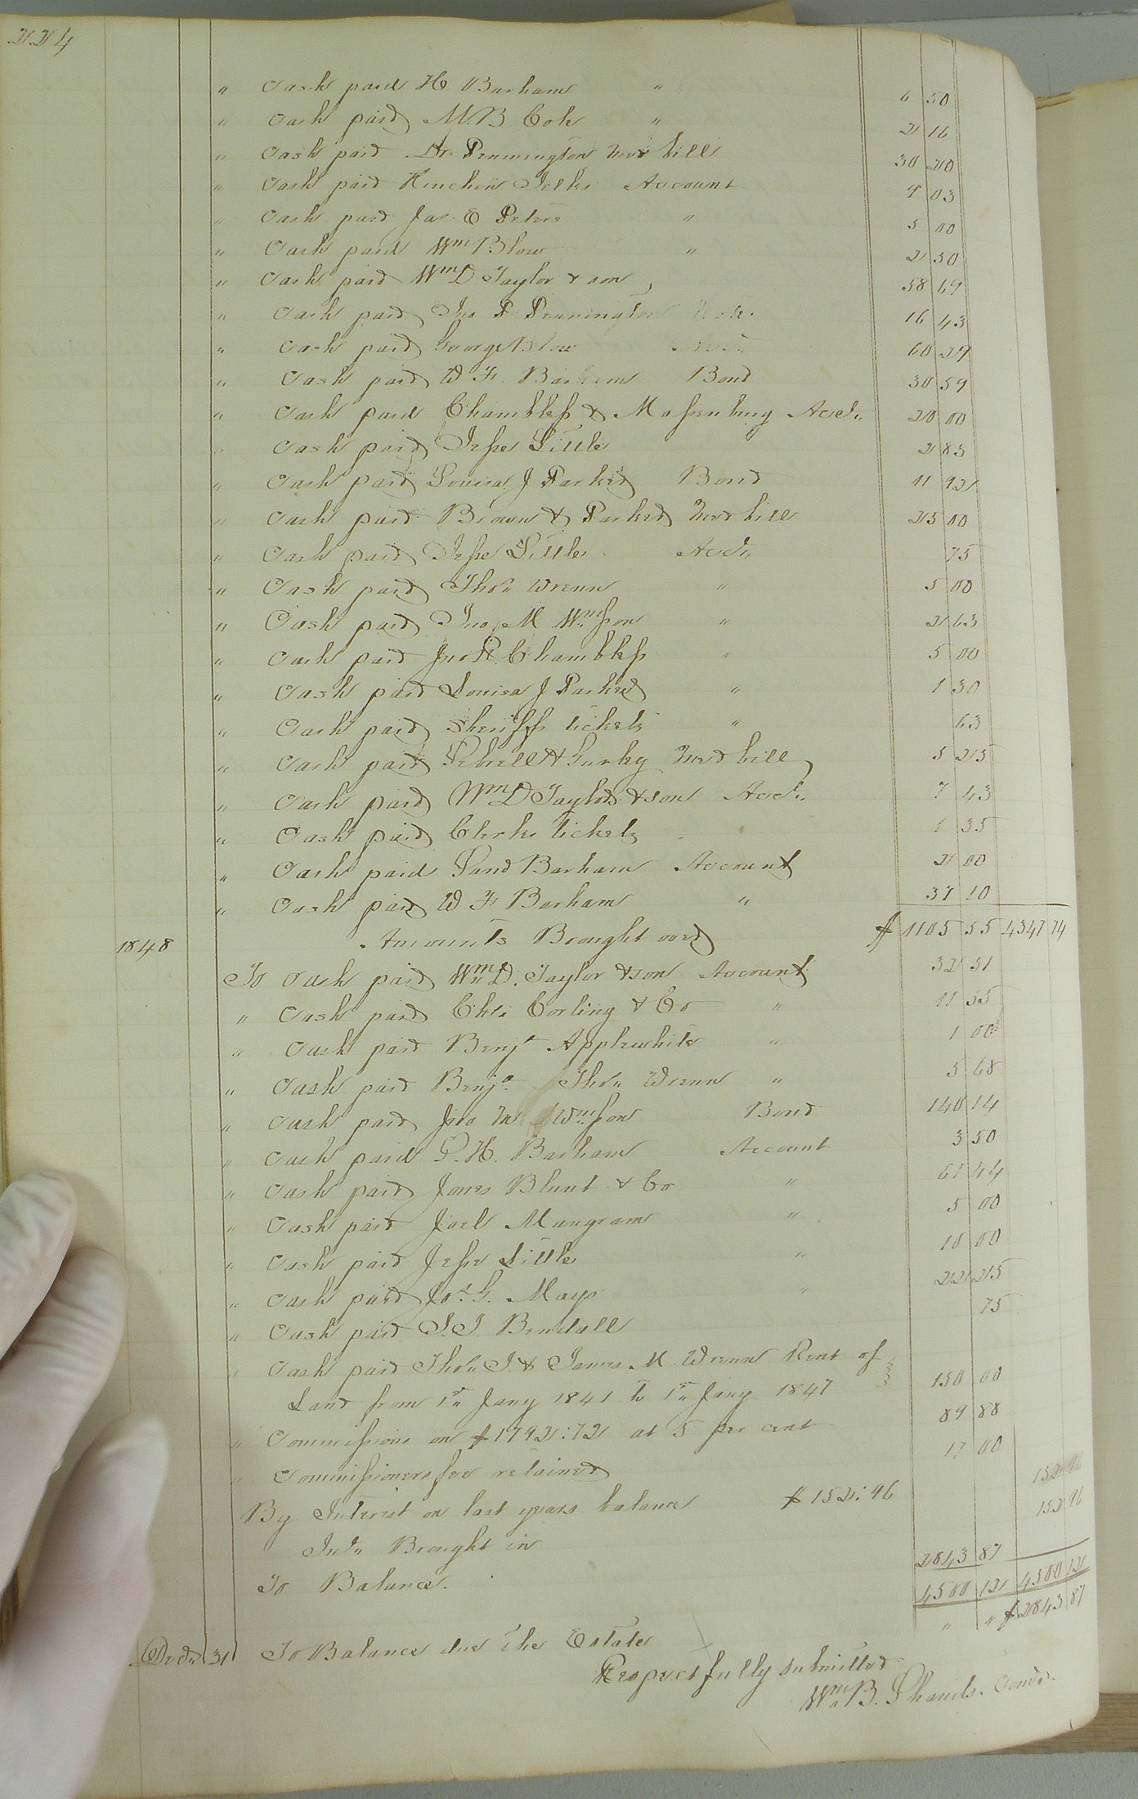 224
" Cash paid H Barham " 6 50
" Cash paid M B Cok " 2 16
" Cash paid Dr. Pennington Med bill 30 20
" Cash paid Hinchen Account 9 03
" Cash paid Jas. E Peters " 5 00
" Cash paid Wm Blow " 2 50
" Cash paid Wm D Taylor & son, 58 69
" Cash paid Jno P Pennington 16 43
" Cash paid George Blow Acct. 60 29
" Cash paid W F. Barham Bond 30 59
" Cash paid Chambless & Massenburg Acct. 20 00
" Cash paid Jesse Little 2 83
" Cash paid Louisa J Parker Bond 11 92
" Cash paid Brown & Parker Med bill 25 00
" Cash paid Jesse Little Acct. 75
" Cash paid Thos. Wrenn " 5 00
" Cash paid Jno. M Wmson " 2 63
" Cash paid Jno R Chambless " 5 00
" Cash paid Louisa J Parker " 1 30
" Cash paid Sheriffs tickets " 63
" Cash paid & Gurley Med bill 5 25
" Cash paid Wm D Taylor & son Acct. 7 43
" Cash paid Clerks tickets 1 35
" Cash paid Barham Account 2 00
" Cash paid W F Barham " 37 10
1848 Amounts Brought over $ 1105 55 4347 74
To Cash paid Wm D. Taylor & son Account 32 51
" Cash paid Chs. Corling & Co " 11 55
" Cash paid Benja Applewhite " 1 00
" Cash paid Benja. Thos. Wrenn " 5 68
" Cash paid Jno M Wmson Bond 140 14
" Cash paid S. H. Barham Account 3 50
" Cash paid Jones Blunt & Co " 61 44
" Cash paid Joel Mangram " 5 00
" Cash paid Jesse Little " 10 00
" Cash paid Jos. G. Mays " 22 25
" Cash paid S. J. Bendall 75
" Cash paid Thos. J. & James M. Wrenn Rent of
Land from 1st Jany 1841 to 1st Jany 1847 150 00
" Commissions on $1792:72 at 5 per cent 89 88
" Commissioners fee retained 17 00
By Interest on last years balance $ 152:96 152 96
Int. Brought in 152 96
To Balance. 2843 87
4500 12 4500 12
" " $ 2843 87
Decd. 31 To Balance due the Estate
Respectfully submitted
Wm B. Shands. Comr.